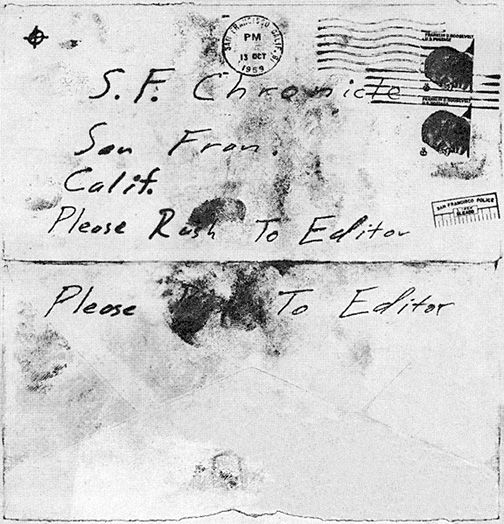 SAN FRANCISCO, CALIF.
PM
13 OCT
1969
FRANKLIN D. ROOSEVELT
U.S. POSTAGE
FRANKLIN D. ROOSEVELT
S.F. Chronicle
San Fran.
Calif.
Please Rush To Editor
SAN FRANCISCO POLICE
Please To Editor